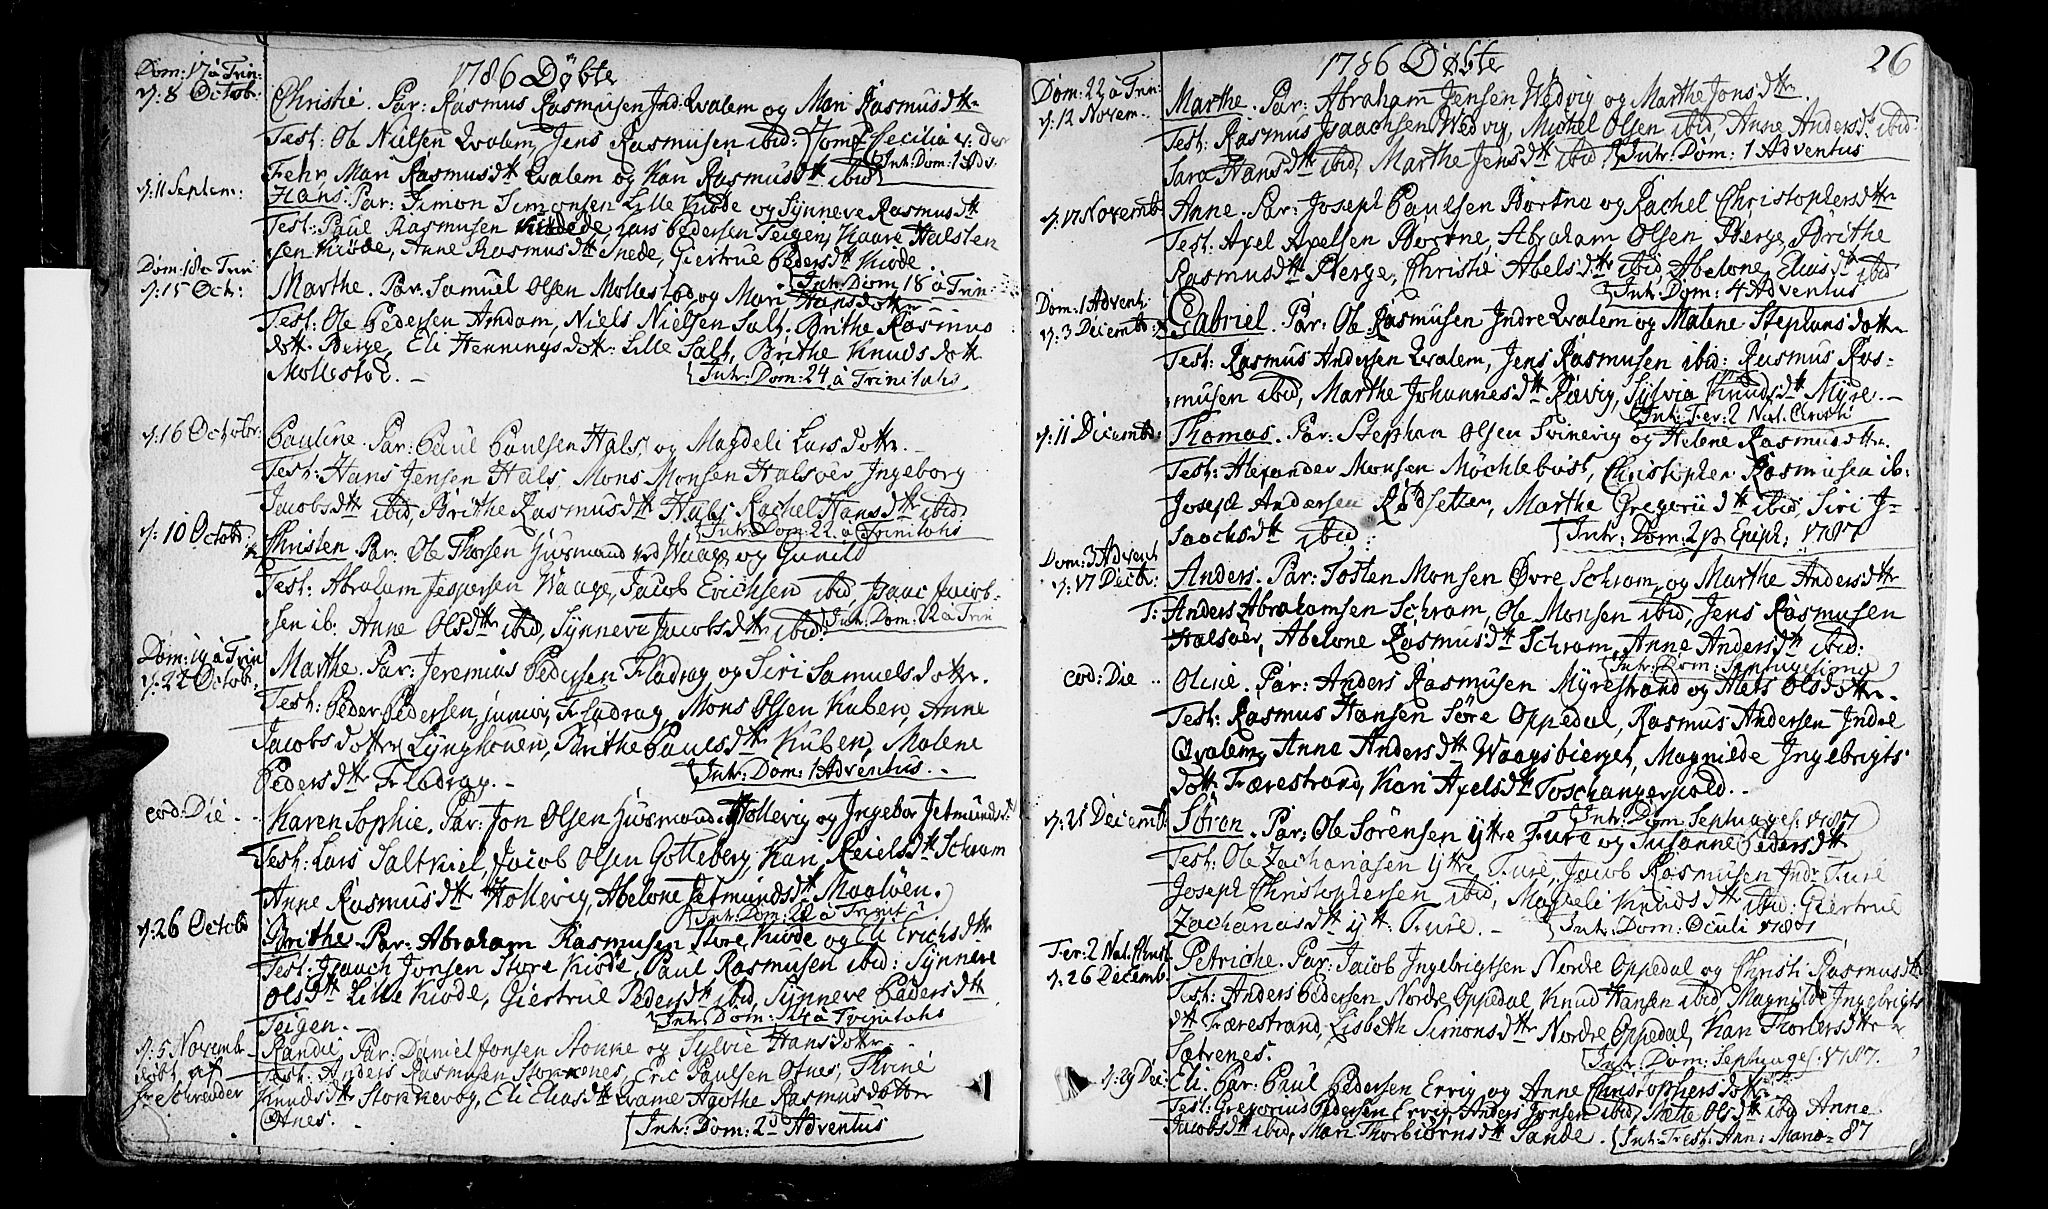 1786 Døbte
Dom: 17 à Trin:
d: 8 Octob:
Christie. Par: Rasmus Rasmusen Ind: Qvalem og Mari Rasmusdttr
Test: Ole Nielsen Qvalem, Jens Rasmusen ibid: Jomf Cecilia
Fehr Mari Rasmusdttr Qvalem og Kari Rasmusdttr ibid
Intr: Dom: 1 Adv:
d: 11 Septem:
Hans. Par: Simon Simonsen Lille Kiøde og Synneve Rasmusdttr
Test: Paul Rasmusen Lars Pedersen Teigen, Kaare Halsten
sen Kiøde, Anne Rasmusdttr Inede, Giertrue Pedersdttr Kiøde
Intr: Dom 18 à Trin
Dom: 18 à Trin
d: 15 Oct:
Marthe. Par: Samuel Olsen Mollestad og Mari Hansdottr
Test: Ole Pedersen Amdam, Niels Nielsen Salt, Brithe Rasmus
dottr Berge, Eli Henningsdottr Lille Salt, Brithe Knudsdottr
Mollestad. —
Intr: Dom: 24 à Trinitatis
d: 16 Octobr:
Pauline. Par: Paul Paulsen Hals, og Magdeli Larsdottr. —
Test: Hans Jensen Hals, Mons Monsen Halsøer Ingeborg
Jacobsdttr ibid, Brithe Rasmusdttr Hals, Rachel Hansdttr ibid
Intr: Dom: 22 à Trinitatis
d: 10 Octob:
Christen Par: Ole Thorsen Huusmand ved Waage og Gunild
Test: Abraham Jespersen Waage, Jacob Erichsen ibid Isaac Jacob-
sen ib: Anne Olsdttr ibid, Synneve Jacobsdttr ibid:
Intr: Dom: 22 à Trin
Dom: 19 à Trin
d: 22 Octob:
Marthe. Par: Jeremias Pedersen Fladrag og Siri Samuelsdottr.
Test: Peder Pedersen junior, Fladrag, Mons Olsen Kuben, Anne
Jacobsdottr Lynghouen, Brithe Paulsdttr Kuben, Malene
Pedersdttr Fladrag. —
Intr: Dom: 1 Adventus. —
eod: Die. —
Karen Sophie. Par: Jon Olsen Huusmand Hollevig og Ingebor Jetmundsd:
Test: Lars Saltkiel, Jacob Olsen Gotteberg, Kari Reielsdttr Schram
Anne Rasmusdttr Hollevig, Abelone Jetmundsdttr Maaløen.
Intr: Dom: 22 à Trinit:
d: 26 Octob
Brithe. Par: Abraham Rasmusen Store Kiøde og Eli Erichsdttr
Test: Isaach Jonsen Store Kiøde, Paul Rasmusen ibid: Synneve
Olsdttr Lille Kiøde, Giertrue Pedersdttr ibid, Synneve Pedersdttr
Teigen. —
Intr: Dom: 24 à Trinitatis
d: 5 Novembr
døbt af
Hr Schrøder
Randie, Par: Daniel Jonsen Stokke og Sylvie Hansdottr. —
Test: Anders Rasmusen Stokknes, Eric Paulsen Otnes, Thrine
Knudsdttr Stokkevog, Eli Eliasdttr Qvame Agothe Rasmusdotter
Otnes. —
Intr: Dom: 2d Adventus
1786 Døbte
26
Dom: 22 à Trin:
d: 12 Novem:
Marthe. Par: Abraham Jensen Wedvig og Marthe Jonsdttr.
Test: Rasmus Isaachsen Wedvig, Michel Olsen ibid, Anne Andersdtr ibid:
Sara Hansdttr ibid, Marthe Jensdttr ibid
Intr: Dom: 1 Adventus
d: 17 Novemb
Anne. Par: Joseph Paulsen Bortne og Rachel Christophersdttr
Test: Axel Axelsen Bortne, Abraham Olsen Berge, Brithe
Rasmusdttr Berge, Christie Abelsdttr ibid, Abelone Eliasdtr ibid
Intr: Dom: 4 Adventus
Dom: 1 Advent.
d: 3 Decemb:
Gabriel. Par: Ole Rasmusen Indre Qvalem og Malene Stephansdottr
Test: Rasmus Andersen Qvalem, Jens Rasmusen ibid: Rasmus Ras-
musen ibid, Marthe Johannesdttr Rævig, Sylvia Knudsdttr Myre. —
Intr: Fer: 2 Nat. Christi
d: 11 Decemb:
Thomas. Par: Stephan Olsen Svinevig og Helene Rasmusdttr.
Test: Alexander Monsen Møchlebust, Christopher Rasmusen ib:
Joseph Andersen Rødsetter, Marthe Gregoriidttr ibid, Siri I-
saachsdttr ibid.
Intr: Dom: 2 p Epiph: 1787
Dom: 3 Advent
d: 17 Decb:
Anders. Par: Tosten Monsen Øvre Schram, og Marthe Andersdttr
T: Anders Abrahamsen Schram, Ole Monsen ibid, Jens Rasmusen
Halsøer, Abelone Rasmusdttr Schram, Anne Andersdttr ibid:
Intr: Dom: Septuagesima
eod: Die
Oline. Par: Anders Rasmusen Myrestrand og Alets Olsdottr.
Test: Rasmus Hansen Søre Oppedal, Rasmus Andersen Indre
Qvalem, Anne Andersdttr Waagsbierget, Magnilde Ingebrigts
dottr Færestrand, Kari Axelsdttr Toschangerpold. —
Intr: Dom Septuages. 1787
d: 21 Decemb
Søren. Par: Ole Sørensen ytre Fure og Susanne Pedersdttr
Test: Ole Zachariasen ytre Fure, Jacob Rasmusen Indr: Fure
Joseph Christophersen ibid, Magdeli Knudsdttr ibid: Giertrue
Zachariasdttr ytr. Fure. —
Intr: Dom: Oculi 1787
Fer: 2 Nat. Christi
d: 26 Decemb:
Petriche. Par: Jacob Ingebrigtsen Nordre Oppedal og Christi Rasmusdttr
Test: Anders Pedersen Nordre Oppedal Knud Hansen ibid, Magnilde Ingebrigts
dttr Færestrand Lisbeth Simonsdttr Nordre Oppedal, Kari Thorlersdttr
Sætrenes.
Intr: Dom: Septuages. 1787.
d: 29 Dec:
Eli. Par: Paul Pedersen Ervig og Anne Christophersdottr
Test: Gregorius Pedersen Ervig, Anders Jonsen ibid, Mette Olsdttr ibid Anne
Jacobsdttr ibid, Mari Thorbiørnsdttr Sande.
Intr: Fest: Ann: Maria = 87